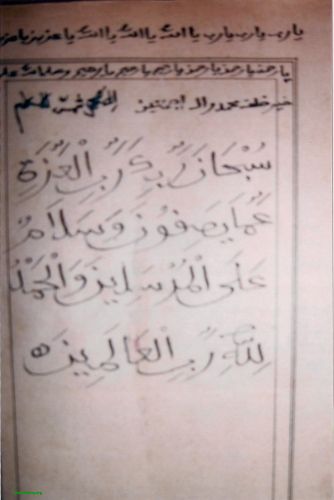 يارب يارب يارب يا الله يا الله يا الله يا عزيز يا عزيز
يارحمن يارحمن يارحمن يارحيم يارحيم يارحيم وصلى الله على
خير خلقه محمد واله اجمعين
سُبْحَانَ رَبِّكَ رَبِّ الْعِزَّةِ
عَمَّا يَصِفُونَ وَسَلَامٌ
عَلَى الْمُرْسَلِينَ وَالْحَمْدُ
لِلَّهِ رَبِّ الْعَالَمِينَ